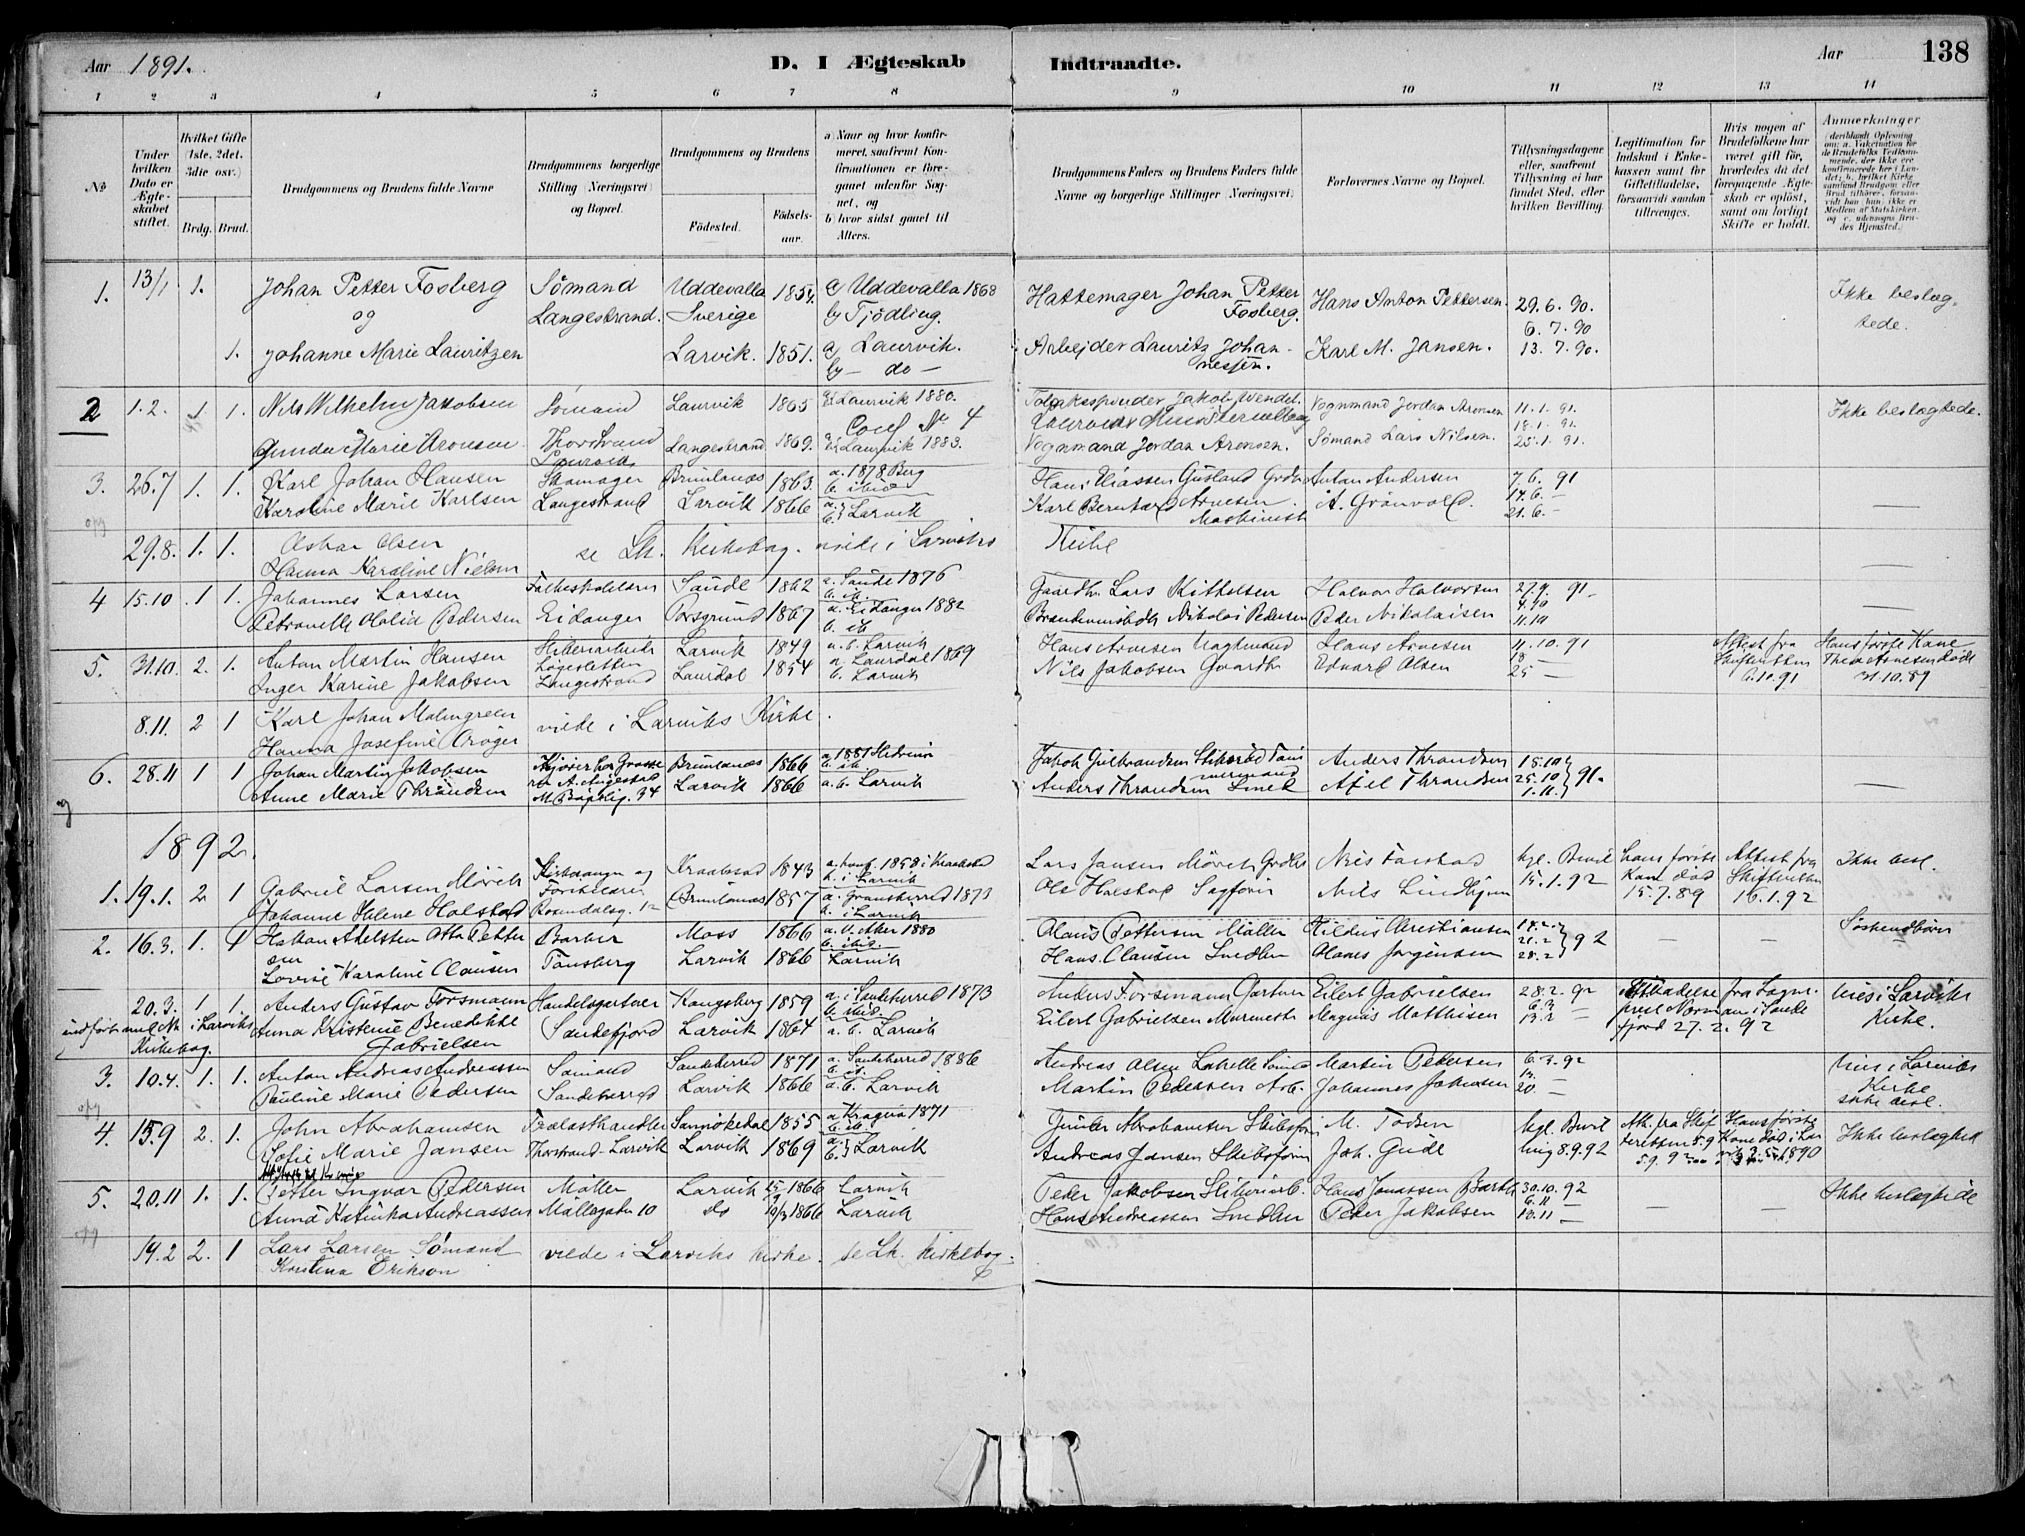 Aar 1891.
D. I Ægteskab Indtraadte.
Aar 138
1 2 3 4 5 6 7 8 9 10 11 12 13 14
No
Under hvilken Dato er Ægteskabet stiftet.
Hvilket Gifte (1ste, 2det, 3die osv.)
Brdg. Brud.
Brudgommens og Brudens fulde Navne
Brudgommens borgerlige Stilling (Næringsvei) og Bopæl.
Brudgommens og Brudens
Fødested.
Fødselsaar.
a) Naar og hvor konfirmeret, saafremt Konfirmationen er foregaaet udenfor Sognet, og
b) hvor sidst gaaet til Alters.
Brudgommens Faders og Brudens Faders fulde Navne og borgerlige Stillinger (Næringsvei).
Forlovernes Navne og Bopæl.
Tillysningsdagene eller, saafremt Tillysning ei har fundet Sted, efter hvilken Bevilling.
Legitimation for Indskud i Enkekassen samt for Giftetilladelse, forsaavidt saadan tiltrænges.
Hvis nogen af Brudefolkene har været gift før, hvorledes da det foregaaende Ægteskab er opløst, samt om lovligt Skifte er holdt.
Anmerkninger
1. 13/1 1. Johan Petter Fosberg Sømand Uddevalla 1854. a) Uddevalla 1868 Hattemager Johan Petter Hans Anton Pettersen. 29. 6. 90. Ikke beslæg-
og Langestrand. Sverige b) Tjødling. Fosberg. 6. 7. 90 tede.
1. Johanne Marie Lauritzen Larvik. 1851. a) Laurvik. Arbejder Lauritz Johan- Karl M. Jansen. 13. 7. 90.
b) — do — nessen.
2 1.2. 1 1. Nils Wilhelm Jakobsen Sømand Laurvik 1865 Laurvik 1880. Jakob Wendel Vognmand Jordan Aronsen 11.1.91. Ikke beslægtede.
Conf No 4 18.1.91.
Gunda Marie Aronsen Thorstrand Langestrand 1869. Laurvik 1883. Vognmand Jordan Aronsen. Sømand Lars Nilsen. 25.1.91.
Laurvik
3. 26.7 1. 1. Karl Johan Hansen Skomager Brunlanæs 1863. a. 1878 Berg Anton Andersen 7.6. 91
b. ibid 14.6. —
Karoline Marie Karlsen Langestrand Larvik 1866 a. b. } Larvik Karl Bernhard Arnesen A. Grønvold. 21.6. — —
Maskinist
29.8. 1. 1. Oskar Olsen se Lk. Kirkebog. viede i Larviks Kirke
Hanna Karoline Nielsen —
4 15.10 1 1. Johannes Larsen Folkeskolelærer Sande 1862 a. Sande 1876 Gaardbr. Lars Kittelsen Halvor Halvorsen 27.9. 91.
b. ib. 4.10
Petronelle Halid Pedersen Eidanger Porsgrund 1867 a. Eidanger 1882 Nikolai Pedersen Peder Nikolaisen 11.10 —
b. ib
5. 31.10. 2. 1. Anton Martin Hansen Skiberiarbeider Larvik 1849 a.b. Larvik Hans Arnesen Vagtmand Hans Arnesen 11.10.91 Attest fra Hans første Kone
Løgesletten 18 — Skifteretten Thea Arnesen død
Inger Karine Jakobsen Langestrand Laurdal 1854 a. Laurdal 1869 Nils Jakobsen Gaardbr. Edvard Olsen 25 — 6.10.91 31.10.89
b. Larvik
8.11. 2 1 Karl Johan Malmgreen viede i Larviks Kirke.
Hanna Josefine Krøger
6. 28.11 1 1 Johan Martin Jakobsen Kjører hos Grosse- Brunlanæs 1866 a. 1881 Hedrum Jakob Gulbrandsen Anders Thrandsen 18.10
rer A. Angestad b. ib 25.10 } 91.
Anne Marie Thrandsen 34 Larvik 1866 a. b. Larvik Anders Thrandsen Smed Axel Thrandsen 1.11. —
1892.
1. 19.1. 2 1 Gabriel Larsen Mørch Kirkesanger og Kraakstad 1843 a. konf. 1858 i Kraakstad Lars Jansen Mørch Grdbr. Nils Farstad kgl. Bevil hans første Attest fra Ikke besl.
Forstlærer b. i Larvik 15.1.92 Kone død Skifteretten
Johanne Helene Holstad Rosendalsg. 12 Brunlanæs 1857 a. Gransherred 1873 Ole Holstad Sagfører Nils Lindhjem 15.7.89 16.1.92
b. i Larvik
2. 16.3. 1. 1 Hakon Adelsten Otto Petter- Barber Moss 1866 a. V. Aker 1880 Claus Pettersen Møller Hildus Christiansen 14.2 Søskendbørn
sen b. ibid. 21.2 } 92 — —
Lovise Karoline Clausen Tønsberg Larvik 1866 Larvik Hans Clausen Snedker Hans Jørgensen 28.2
20.3. 1. 1. Anders Gustav Forsmann Handelsgartner Kongsberg 1859 a. i Sandeherred 1873 Anders Forsmann Gartner Eilert Gabrielsen 28.2.92 Tilladelse fra Sogne- Vies i Larviks
b. ibid. 6.3 prest Norman i Sande- Kirke.
indført med No i Larviks Anna Kristine Benedikte Sandefjord Larvik 1864 a. b. Larvik Eilert Gabrielsen Murmester Magnus Mathisen 13.2 — fjord 27.2.92
Kirkebog. Gabrielsen
3. 10.4. 1. 1. Anton Andreas Andreassen Sømand Sandeherred 1871 a. Sandeherred 1886 Andreas Olsen Martin Pedersen 6.3.92 Vies i Larviks
b. ib. 13. Kirke
Pauline Marie Pedersen Sandeherred Larvik 1866 a. b. Larvik Martin Pedersen Arb. Johannes Johnsen 20. — ikke besl.
4. 15.9 2. 1. John Abrahamsen Trælasthandler Sannøkedal 1855 a. Kragerø 1871 Abrahamsen Skibsfører M. Todsen kgl. Bevil Att. fra Skif- Hans første Ikke beslægted
b. ib. teretten 5.9 Kone død i Lar
Sofie Marie Jansen Thorstrand-Larvik Larvik 1869 a. b. } Larvik Andreas Jansen Skibsfører Joh. Gude ling 8.9.92 5.9.92 vik 1890
5. 20.11 1. 1. Petter Ingvar Pedersen Møller Larvik 1866 Larvik Peder Jakobsen Skiberiarb. Hans Jonassen Barth 30.10.92 Ikke beslægtede
6.11 — —
Anna Katinka Andreassen Møllegaden 10 do 1866 Larvik Hans Andreassen Snedker Peder Jakobsen 13.11 —
19.2 2. 1 Lars Larsen Sømand viede i Larviks Kirke. se Lk. Kirkebog.
Kristina Erikson